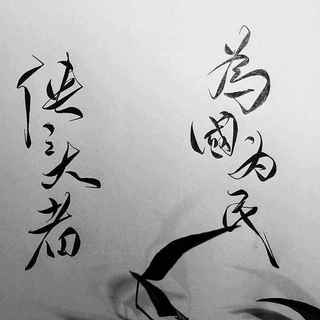 為國为民
侠之大者